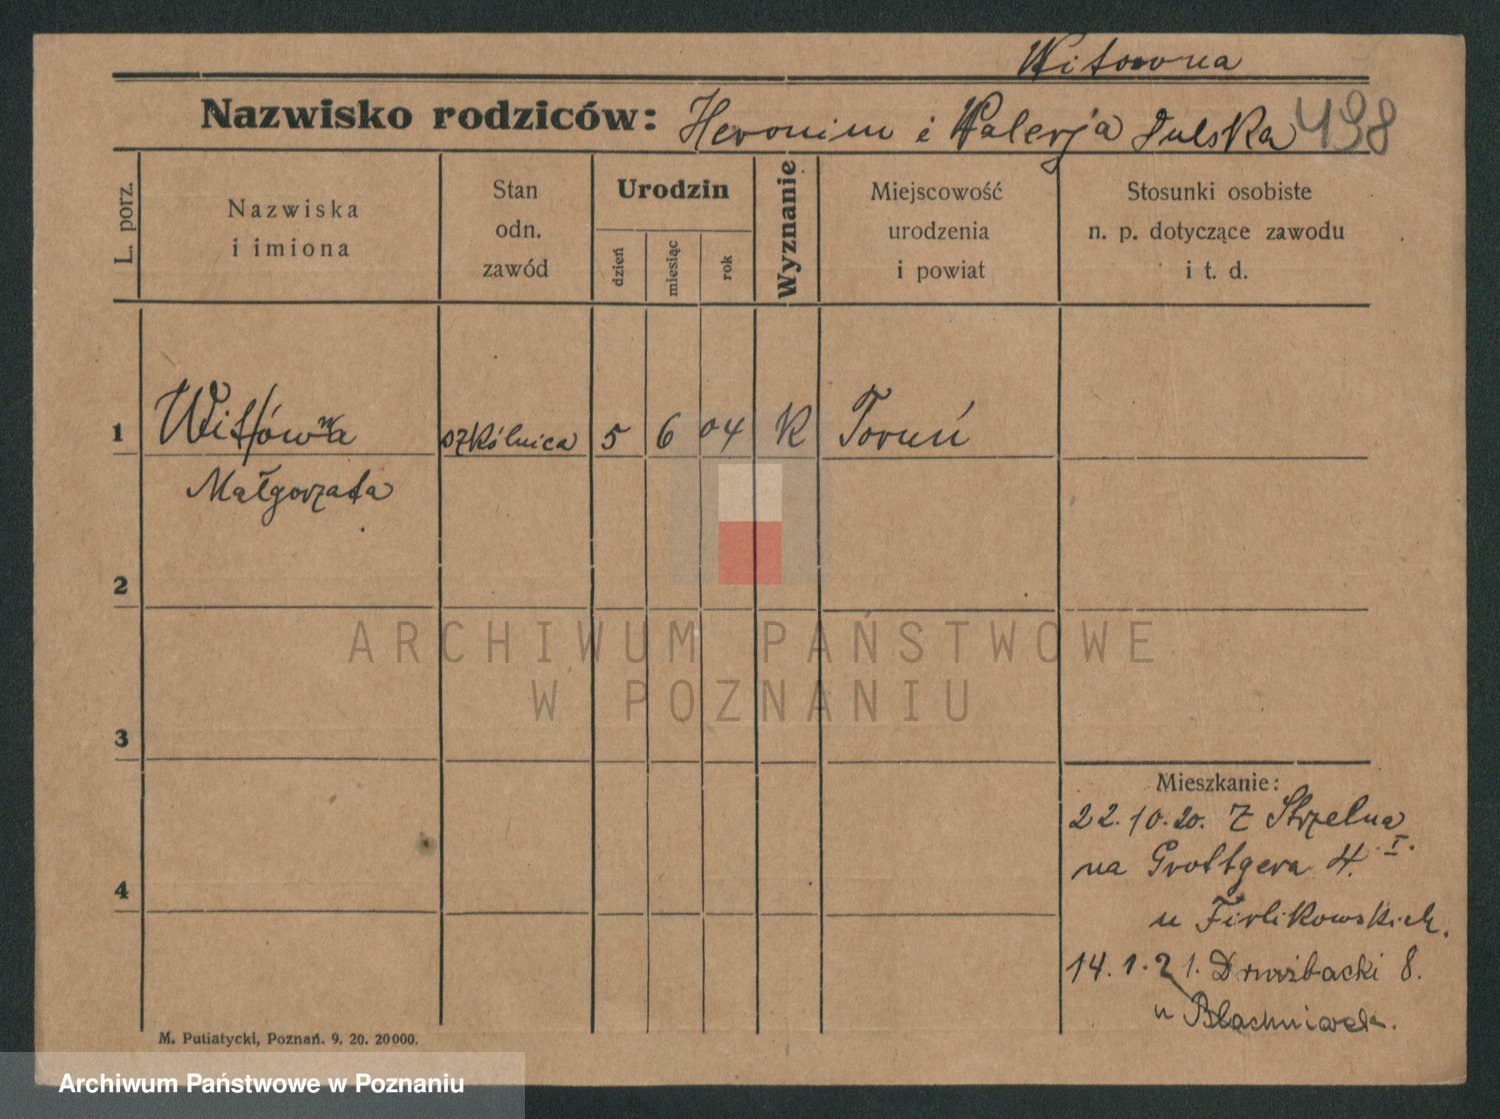 Witowna
Nazwisko rodziców: Heronim i Walerja Dulska 498
L. porz.
Nazwiska
i imiona
Stan
odn.
zawód
Urodzin
dzień
miesiąc
rok
Wyznanie
Miejscowość
urodzenia
i powiat
Stosunki osobiste
n. p. dotyczące zawodu
i t. d.
1 Witówna szkólnica 5 6 04 K Toruń
Małgorzata
2
ARCHIWUM PAŃSTWOWE
W POZNANIU
3
Mieszkanie:
22.10.20. z Strzelna
na Grottgera 4. I.
4
u Firlikowskich.
14.1.21. Drużbacki 8.
u
M. Putiatycki, Poznań. 9. 20. 20000.
Archiwum Państwowe w Poznaniu